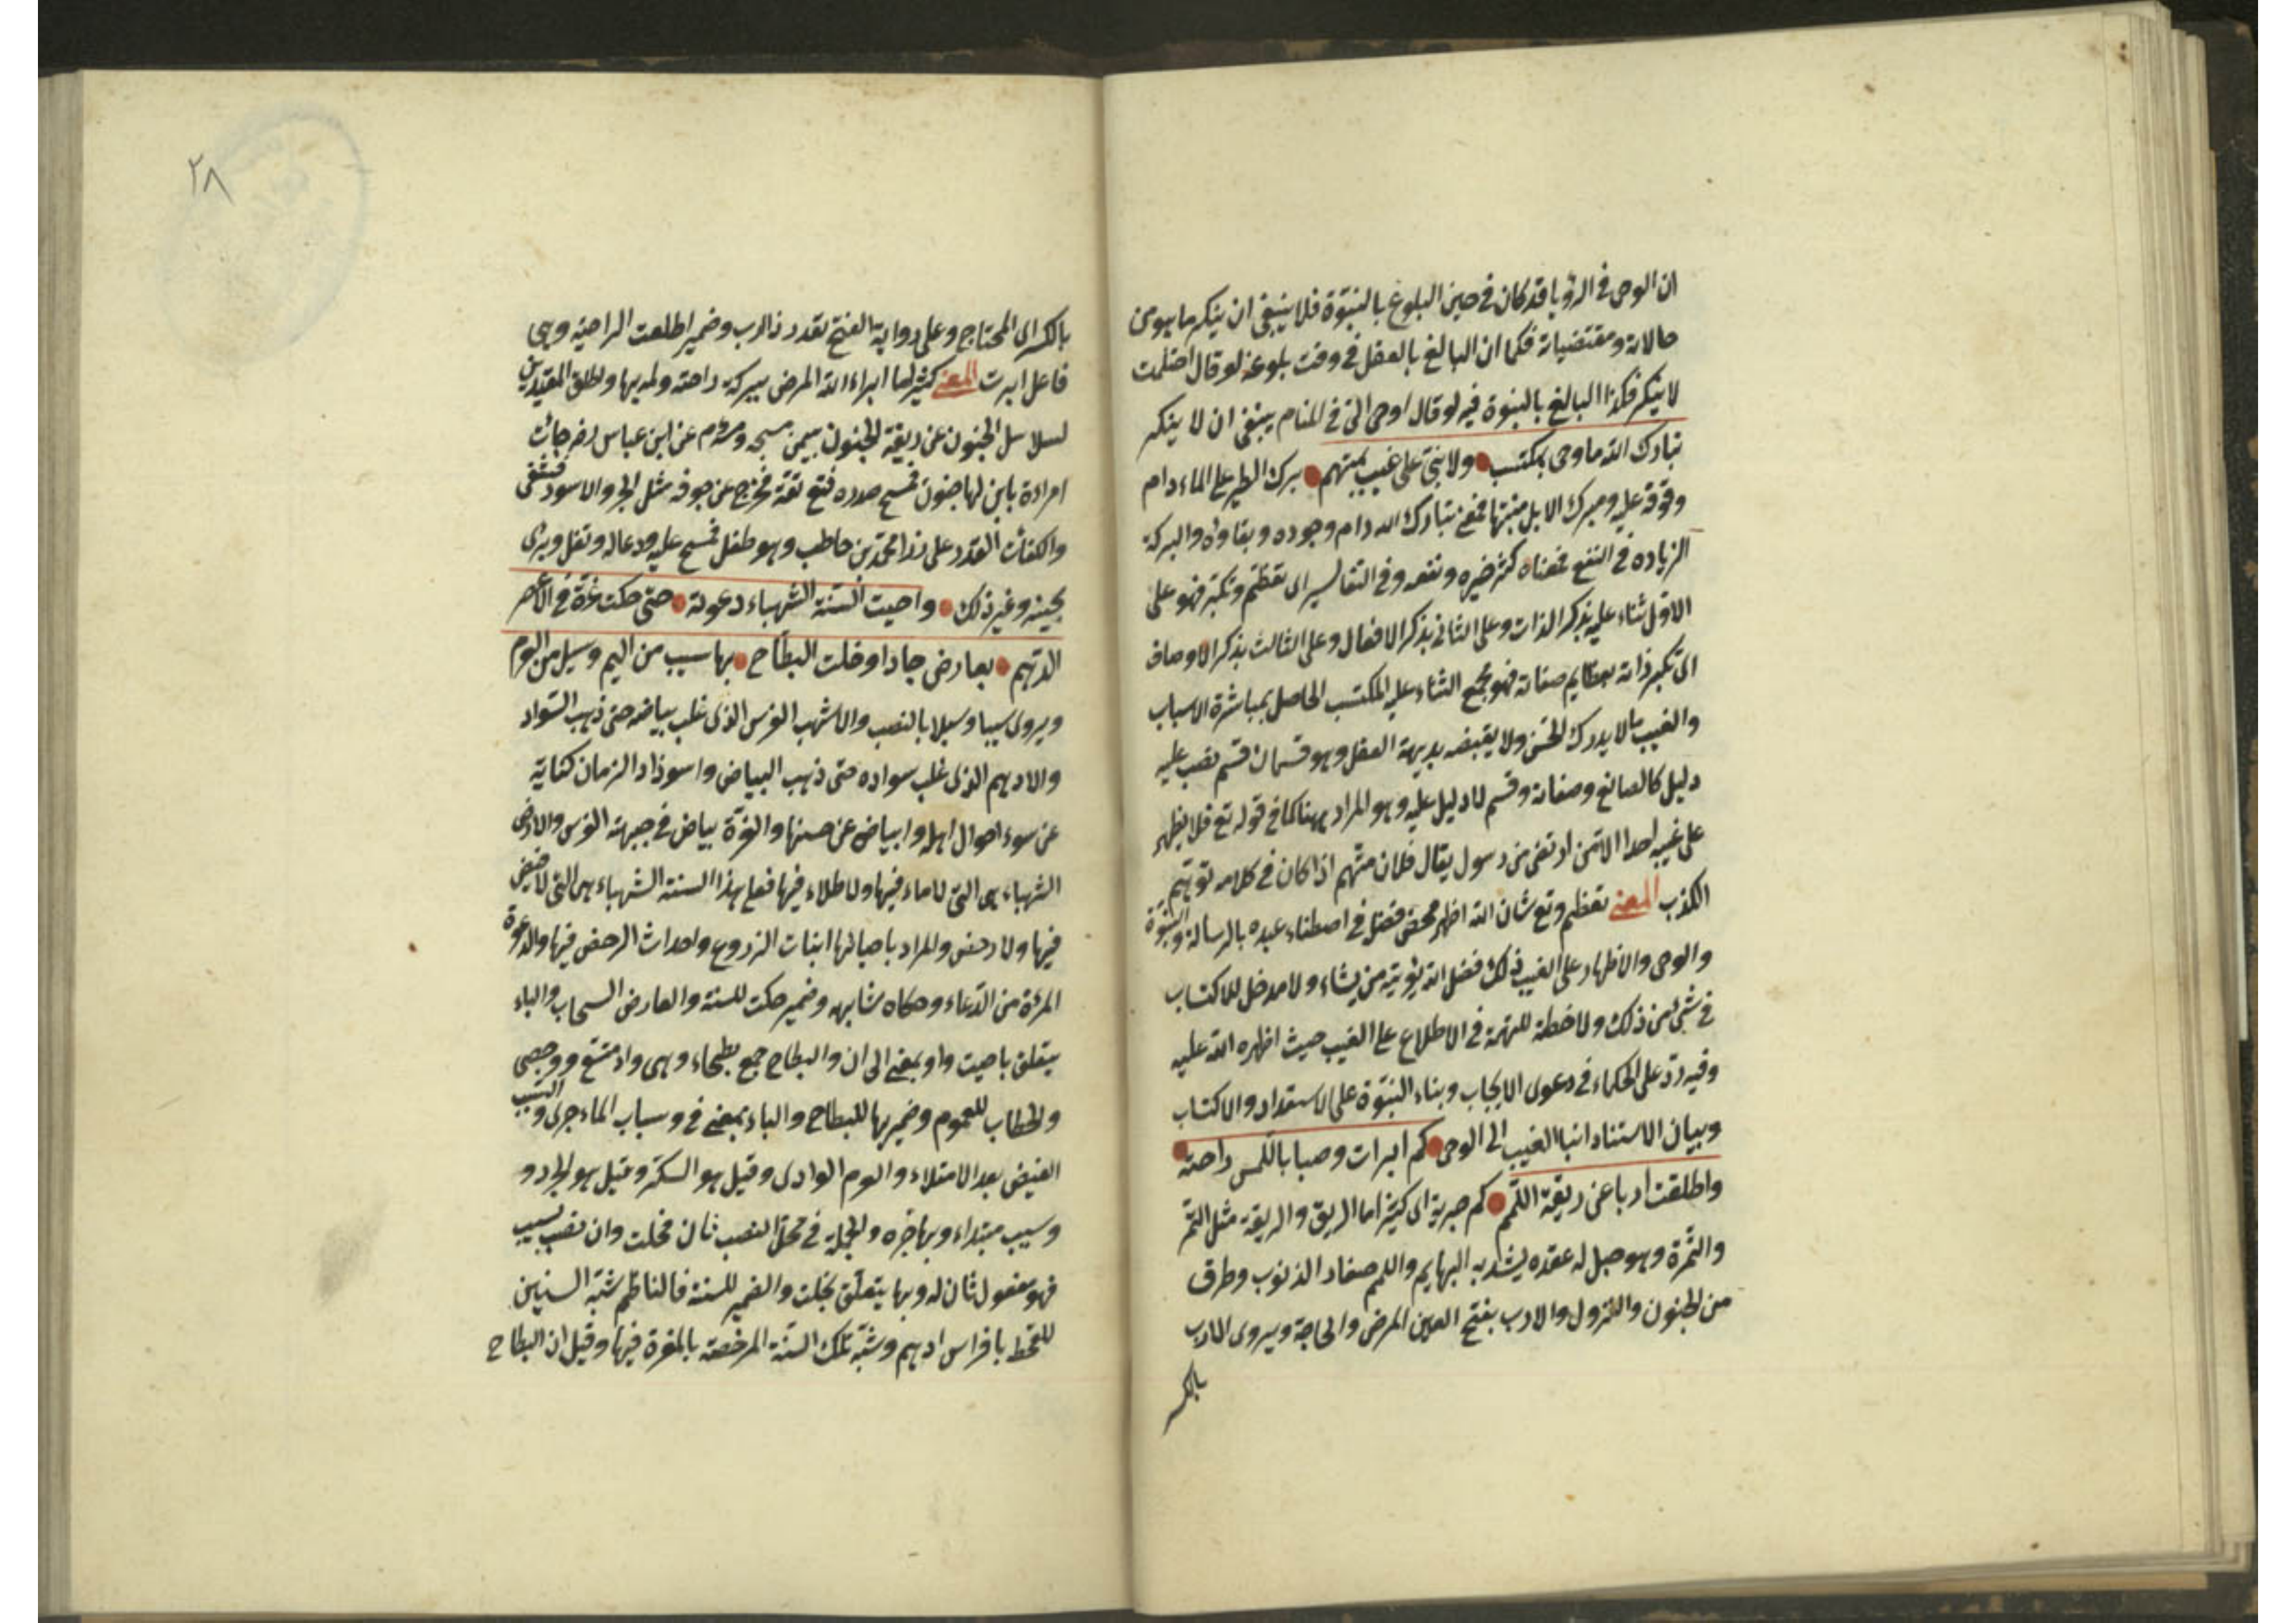 ان الوحى فى الرؤيا قد كان فى حين البلوغ بالنبوّة فلا ينبغى ان ينكر ما هو من
حالاته ومقتضياته فكما ان البالغ بالعقل فى وقت بلوغه لو قال احتلمت
لا ينكر فكذا البالغ بالنبوة فيه لو قال اوحى الىّ فى المنام ينبغى ان لا ينكر
تبارك الله ما وحى بمكتسب ولا نبىّ على غيب بمتهم برك الطير على الماء دام
وقوفه عليه ومبرك الابل منبتها فمعنى تبارك الله دام وجوده وبقاؤه والبركة
الزياده فى النفع فمعناه كثر خيره ونفعه وفى التفاسير اى تعظّم وتكبّر فهو على
الاوّل ثناء عليه بذكر الذات وعلى الثانى بذكر الافعال وعلى الثالث بذكر الاوصاف
اى تكبر ذاته بعظايم صفاته فهو مجمع الثناء عليه المكتسب الحاصل بمباشرة الاسباب
والغيب ما لا يدرك الحسّ ولا يقتضه بديهة العقل وهو قسمان قسم نصب عليه
دليل كالصانع وصفاته وقسم لا دليل عليه وهو المراد ههنا كما فى قوله تع فلا يظهر
على غيبه احدا الا من ارتضى من رسول يقال فلان متّهم اذا كان فى كلامه توهّم
الكذب المعنى تعظم وتع شان الله اظهر محض فضل فى اصطناء عبده بالرسالة والنبوّة
والوحى والاظهار على الغيب ذلك فضل الله يؤتيه من يشاء ولا مدخل للاكتساب
فى شئ من ذلك ولا خطة للتهمة فى الاطلاع على الغيب حيث اظهره الله عليه
وفيه ردّ على الحكماء فى دعوى الايجاب وبناء النبوّة على الاستعداد والاكتساب
وبيان الاستناد انبا الغيب الى الوحى كم ابرات وصبا باللّمس راحته
واطلقت اربا عن ريقة اللّمم كم خبرية اى كثيرا ما الريق والريقة مثل التمر
والثمرة وهو حبل له عقده يشد به البهايم واللمم صغار الذنوب وطرف
من الجنون والنزول والارب بفتح العين المرض والحاجة ويروى الارب
بالكسر
٢٨
بالكسر اى المحتاج وعلى رواية الفتح تقدر ذا ارب وضمير اطلعت الراحته وهى
فاعل ابرت المعنى كثير لما ابراء الله المرض ببركة راحته ولمه بها واطلق المقيّدين
لسلاسل الجنون عن ريقة الجنون بيمن مسحه ومرّه م عن ابن عباس رض جائت
امراءة بابن لها جنون فمسح صدره فثع ثعة فخرج عن جوفه مثل الجرو الاسود فشفى
وانكفأت القدر على ذراع محمد بن حاطب وهو طفل فمسح عليه ودعا له وتفل وبرئ
بحينه وغير ذلك واحيت السنة الشهباء دعوته حتى حكت غرّة فى الاعصر
الدّهم بعارض جاد او خلت البطاح بها سيب من اليم وسيل من العرم
ويروى سيبا وسيلا بالنصب والاشهب الفرس الذى غلب بياضه حتى ذهب السّواد
والادهم الذى غلب سواده حتى ذهب البياض واسوداد الزمان كناية
عن سوء احوال اهله وابياض عن حسنها والغرّة بياض فى جبهة الفرس والارض
الشهباء هى التى لا ماء فيها ولا طلاء فيها فعلى هذا السنة الشهباء هى التى لا خضر
فيها ولا رخص والمراد باحيائها انبات الزروع واحداث الرخص فيها والدعوة
المرّة من الدّعاء وحكاه شابهه وضمير حكت للسنة والعارض السحاب والباء
يتعلق باحيت واو بمعنى الى ان والبطاح جمع بطحاء وهى واد متسع ووحصى
والخطاب للعموم وضمير بها للبطاح والباء بمعنى فى وسباب الماء جرى والسيب
الفيض بعد الامتلاء والعرم الوادى وقيل هو السكر وقيل هو الجرد و
وسيب مبتداء وبها خبره والجملة فى محلّ النصب ثان فخلت وان نصب سيب
فهو مفعول ثان له وبها يتعلّق بخلت والضمير للسنة فالناظم شبّه السنين
للقحط بافراس ادهم وشبّه تلك السّنة المرخصة بالمغرة فيها وقيل ان البطاح